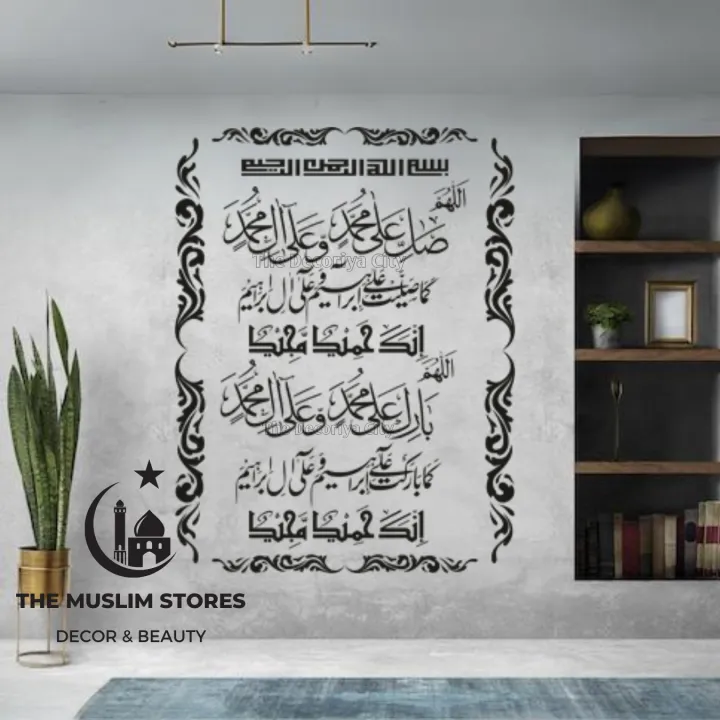 بسم الله الرحمن الرحيم
اللَّهُمَّ
صَلِّ عَلَى مُحَمَّدٍ وَعَلَى آلِ مُحَمَّدٍ
The Decoriya City
كما صليت على إبراهيم وعلى آل إبراهيم
إنك حميد مجيد
اللَّهُمَّ
بَارِكْ عَلَى مُحَمَّدٍ وَعَلَى آلِ مُحَمَّدٍ
The Decoriya City
كما باركت على إبراهيم وعلى آل إبراهيم
إنك حميد مجيد
THE MUSLIM STORES
DECOR & BEAUTY